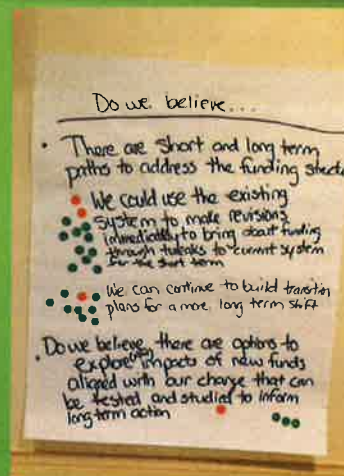 Do we believe...
• There are short and long term
paths to address the funding
We could use the existing
system to make revisions
immediately to bring about funding
through tweaks to current system
for the short term
We can continue to build transition
plans for a more long term shift
• Do we believe, there are options to
explore impacts of new funds
aligned with our charge that can
be tested and studied to inform
long term action